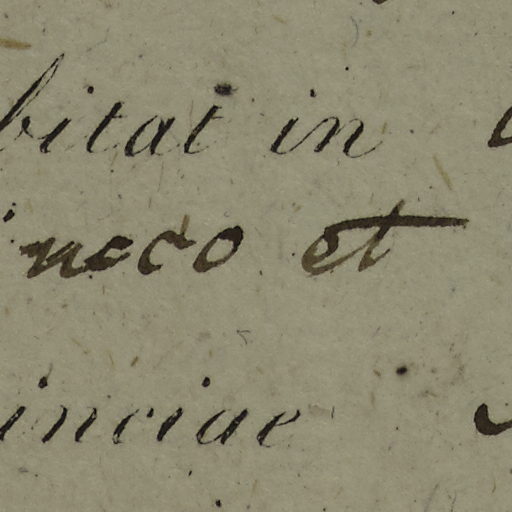 bitat in
neco et
inciae